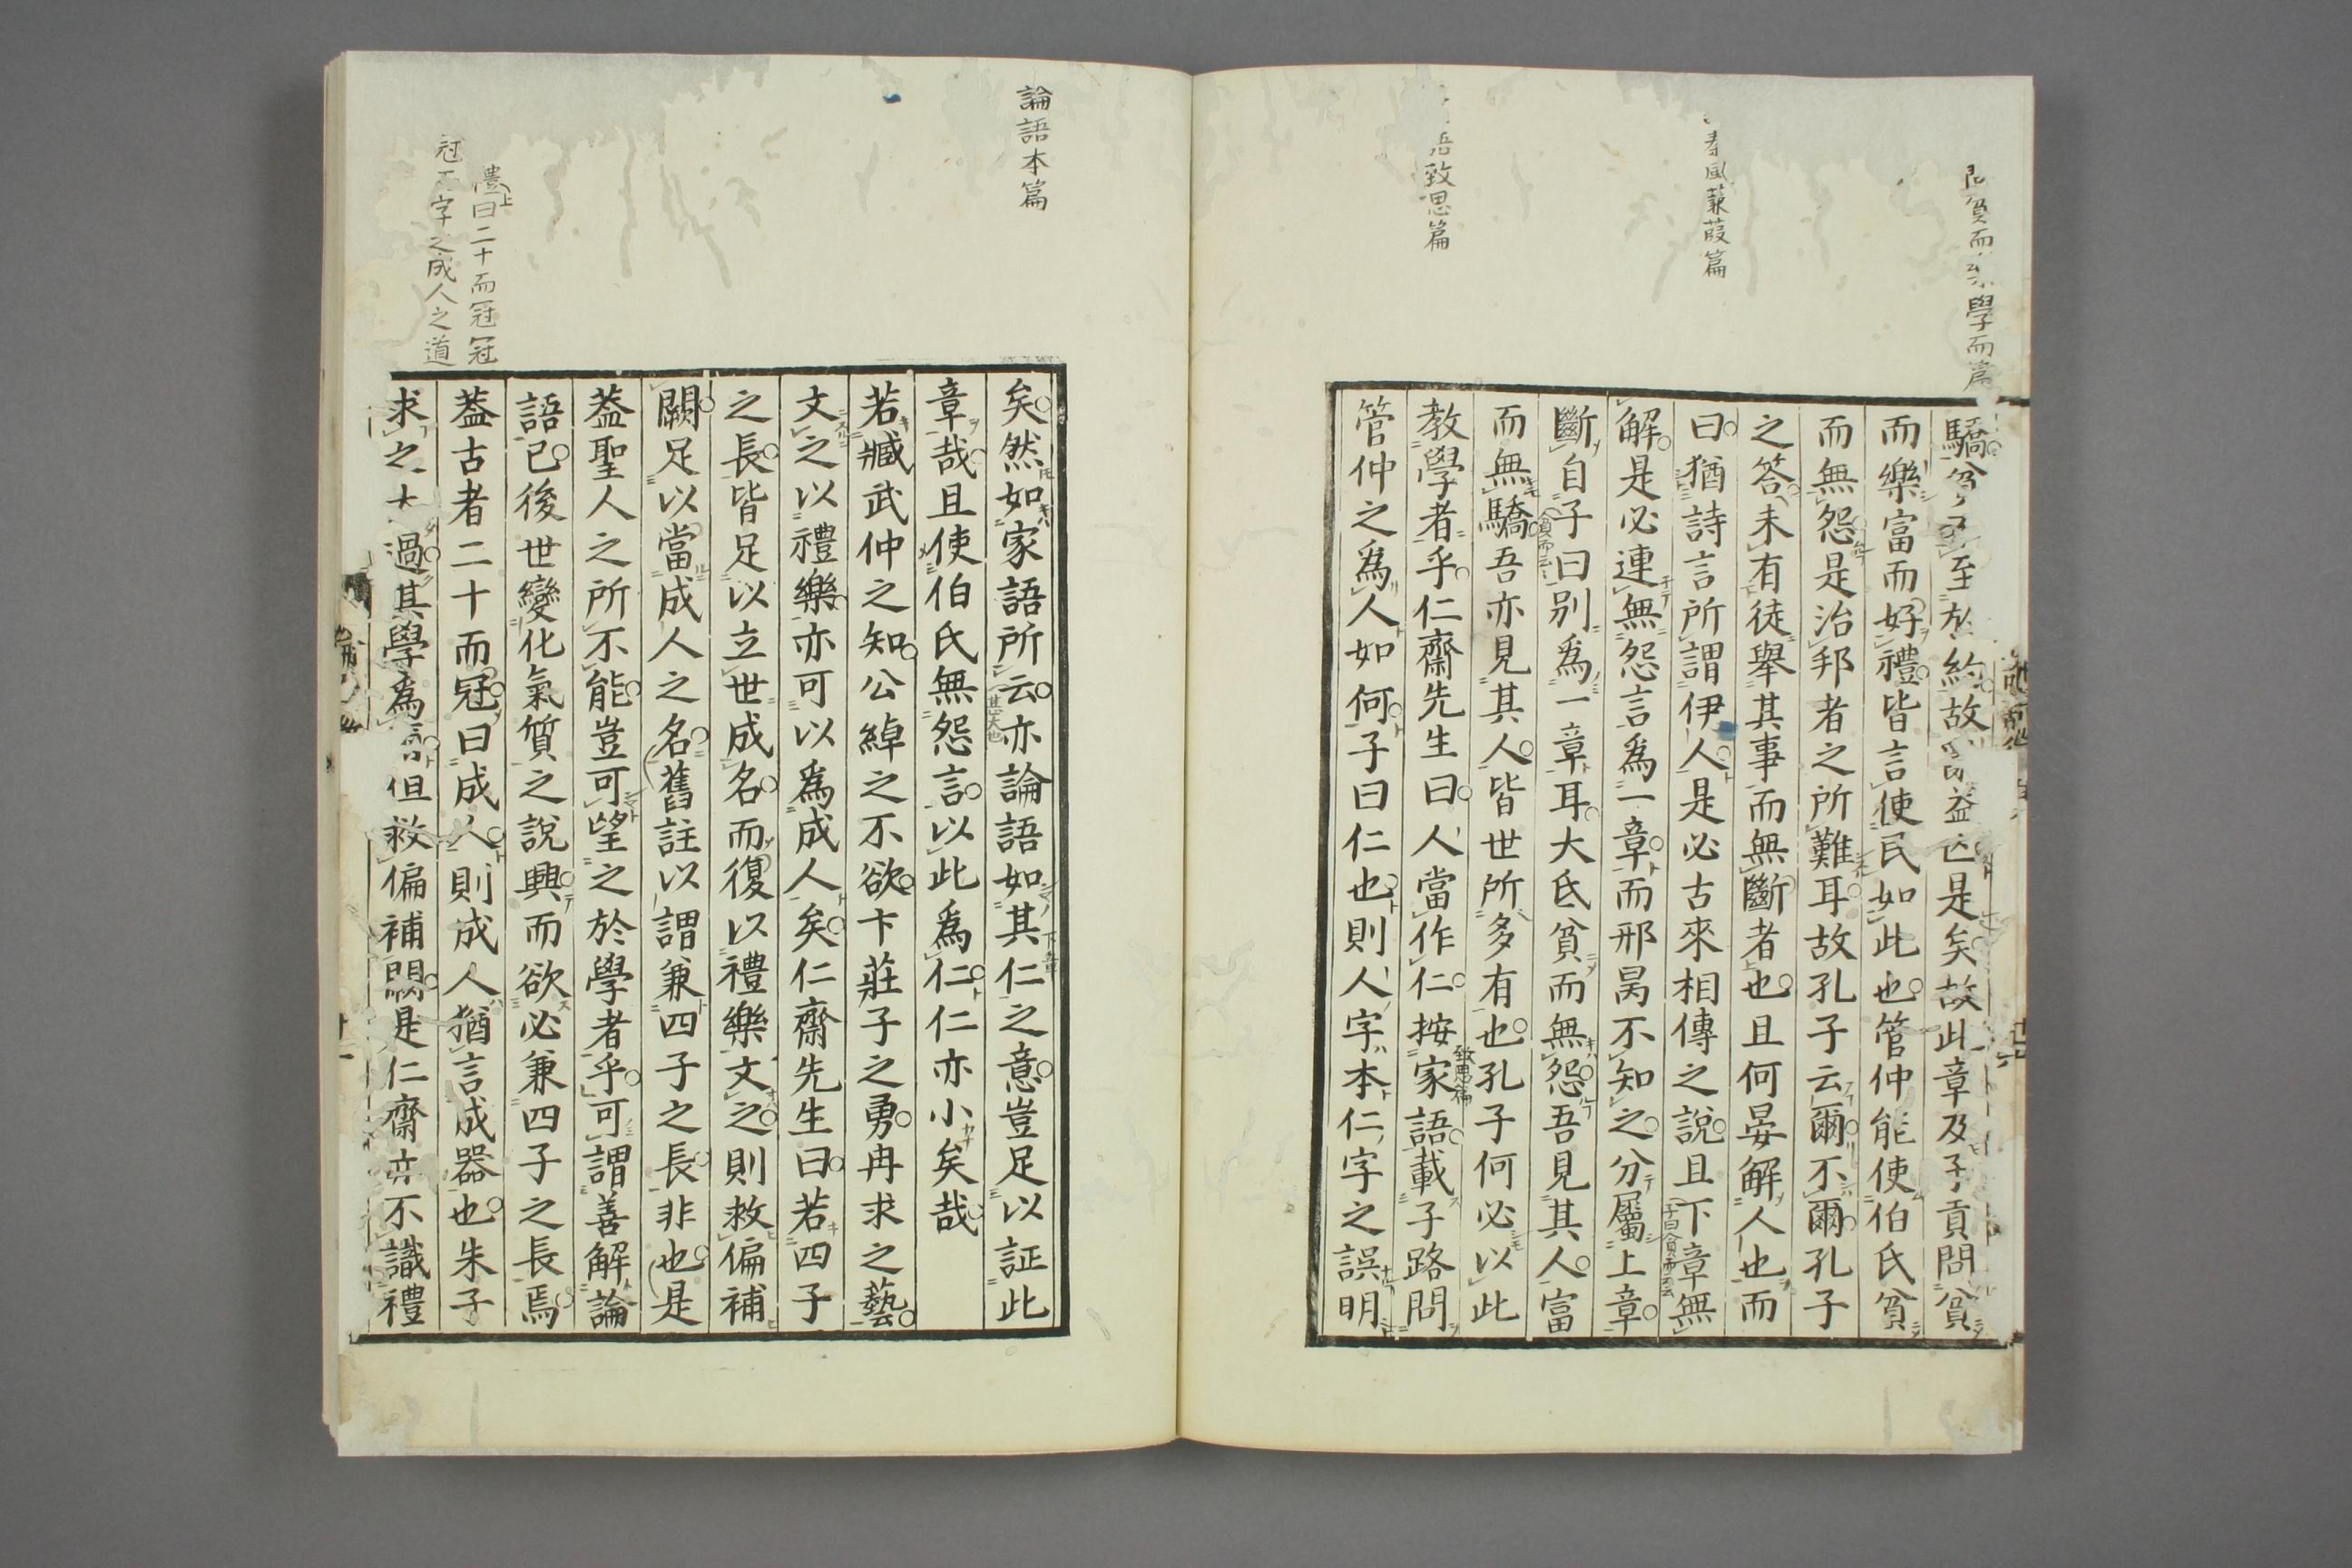 貧而樂學而篇
春風蒹葭篇
語致思篇
驕至於約故益亡是矣故此章及子貢問貧
而樂富而好禮皆言使民如此也管仲能使伯氏貧
而無怨是治邦者之所難耳故孔子云爾不爾孔子
之答未有徒舉其事而無斷者也且何晏解人也而
曰猶詩言所謂伊人是必古來相傳之說且下章無
子曰貧而云云
解是必連無怨言爲一章而邢昺不知之分屬上章
斷自子曰別爲一章耳大氐貧而無怨吾見其人富
貧而云云
而無驕吾亦見其人皆世所多有也孔子何必以此
教學者乎仁齋先生曰人當作仁按家語載子路問
致思篇
管仲之爲人如何子曰仁也則人字本仁字之誤明
論語本篇
禮曰二十而冠冠
冠而字之成人之道
矣然如家語所云亦論語如其仁之意豈足以証此
甚大也
下章
章哉且使伯氏無怨言以此爲仁仁亦小矣哉
若臧武仲之知公綽之不欲卞莊子之勇冉求之藝
文之以禮樂亦可以爲成人矣仁齋先生曰若四子
之長皆足以立世成名而復以禮樂文之則救偏補
闕足以當成人之名舊註以謂兼四子之長非也是
葢聖人之所不能豈可望之於學者乎可謂善解論
語已後世變化氣質之說興而欲必兼四子之長焉
葢古者二十而冠曰成人則成人猶言成器也朱子
求之大過其學爲但救偏補闕是仁齋亦不識禮